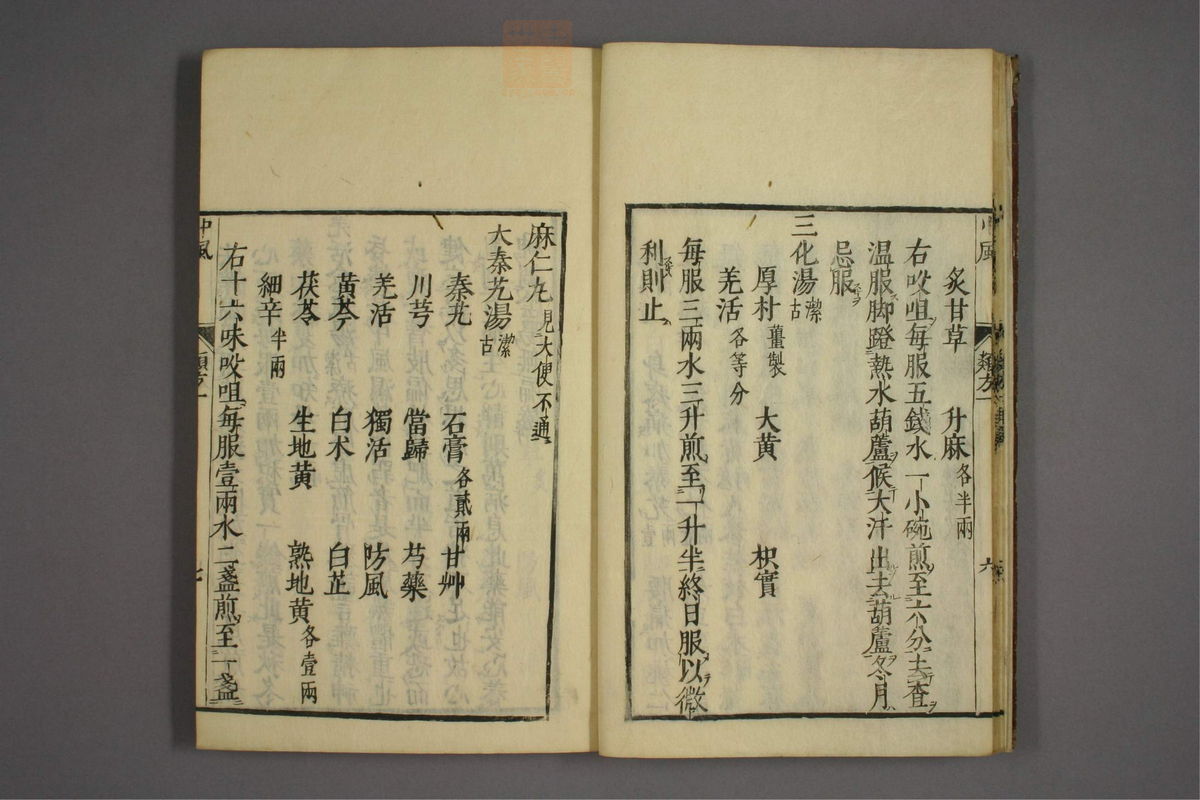 炙甘草　升麻各半兩
右㕮咀每服五錢水一小碗煎至六分去査
温服脚蹬熱水葫蘆候大汗出去葫蘆冬月
忌服
三化湯潔古
厚朴薑製　大黄　枳實
羌活各等分
每服三兩水三升煎至一升半終日服以微
利則止
類方一　六
麻仁丸見大便不通
大秦艽湯潔古
秦艽　石膏各貳兩　甘艸
川芎　當歸　芍藥
羌活　獨活　防風
黄芩　白术　白芷
茯苓　生地黄　熟地黄各壹兩
細辛半兩
右十六味㕮咀每服壹兩水二盞煎至一盞
中風　類方一　七